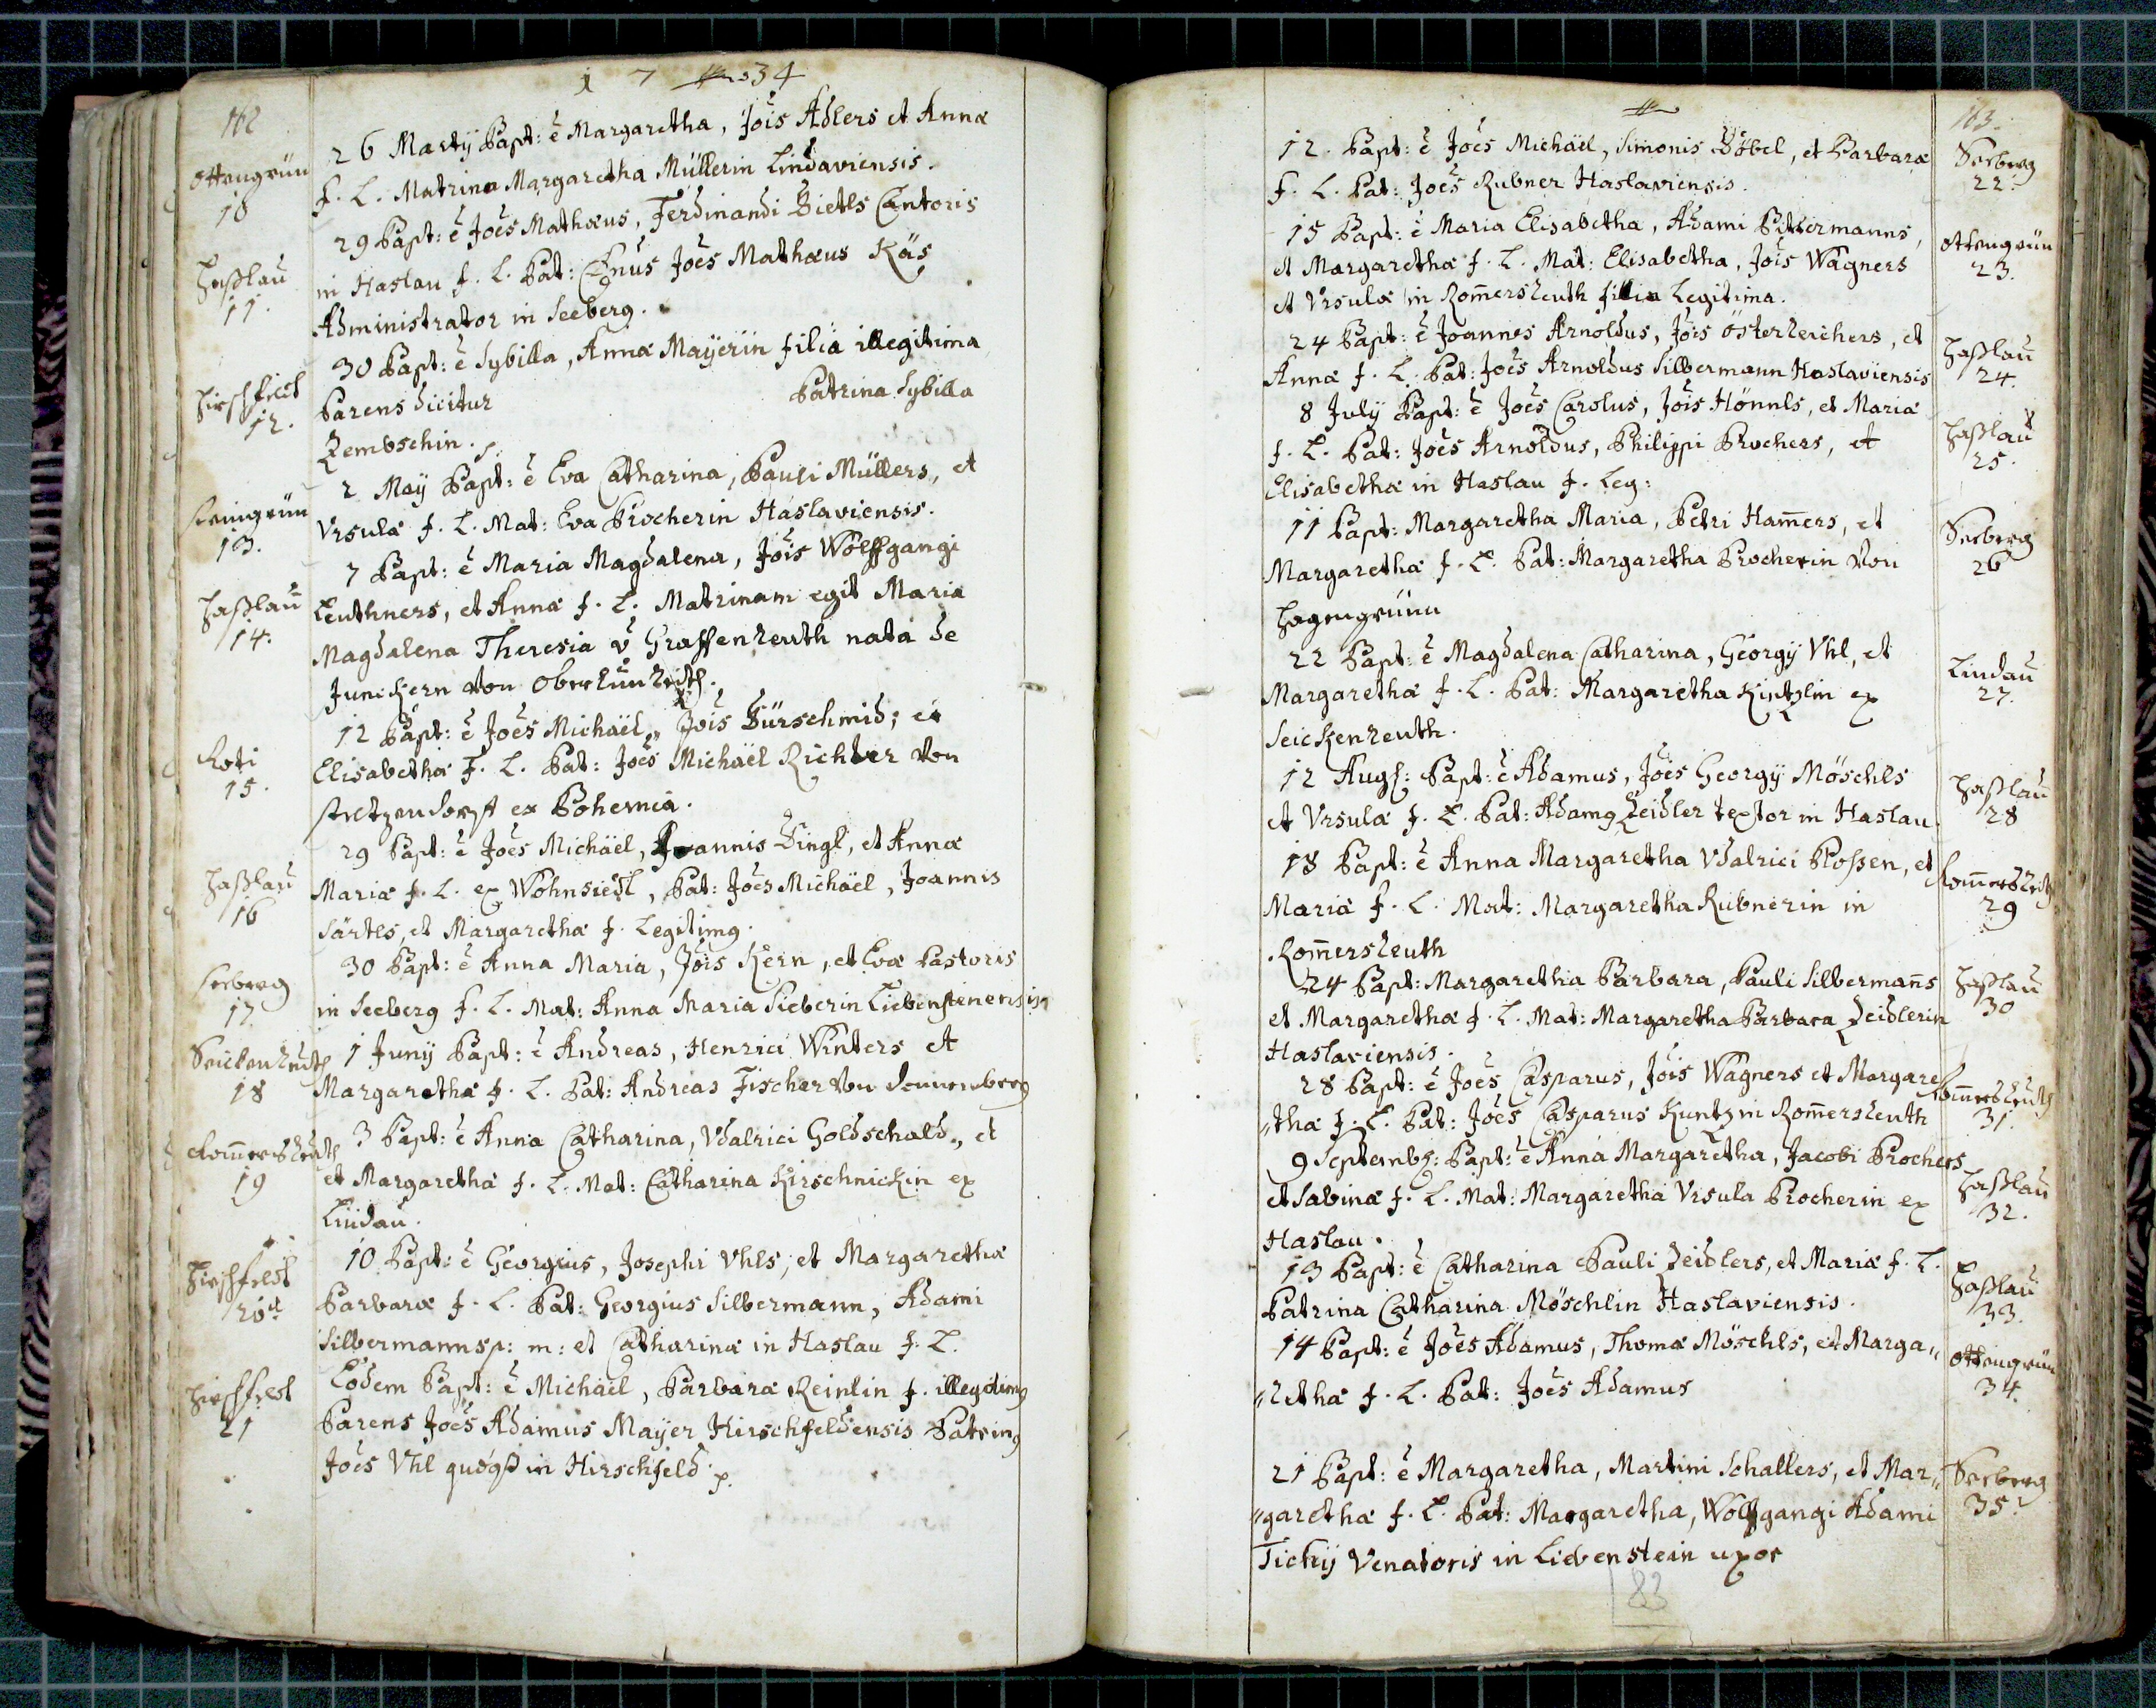 162
1 7 34
Ottengrün
10
26 Martij Bapt: ē Margaretha, Jōis Adlers et Annæ
f. L. Matrina Margaretha Müllerin Lindaviensis.
Haßlau
11.
29 Bapt: ē Joēs Mathæus, Ferdinandi Dietls Cantoris
in Haslau f. L. Pat: Joēs Mathæus Käs
Administrator in Seeberg.
Hirschfeld
12.
30 Bapt: ē Sybilla, Annæ Mayerin filia illegitima
Parens dicitur Patrina Sybilla
Zembschin.
Steingrün
13.
2 Maÿ Bapt: ē Eva Catharina, Pauli Müllers, et
Vrsulæ f. L. Mat: Eva Procherin Haslaviensis.
Haßlau
14.
7 Bapt: ē Maria Magdalena, Jōis Wolffgangi
Leuthners, et Annæ f. L. Matrinam egit Maria
Magdalena Theresia v Graffenreuth nata de
Junckern von
Roti
15.
12 Bapt: ē Joēs Michäel, Jōis Dürschmid, et
Elisabethæ f. L. Pat: Joēs Michäel Richter von
ex Bohemia.
Haßlau
16
29 Bapt: ē Joēs Michäel, Joannis Dingl, et Annæ
Mariæ f. L. ex Wohnsiedl, Pat: Joēs Michäel, Joannis
Särtls, et Margarethæ f. Legitimg.
Seeberg
17.
30 Bapt: ē Anna Maria, Jōis Kern, et Evæ Pastoris
in Seeberg f. L. Mat: Anna Maria Sieberin Liebensteinensis
Seickenreuth
18
1 Junij Bapt: ē Andreas, Henrici Winters et
Margarethæ f. L. Pat: Andreas Fischer von
Rom̄ersreuth
19
3 Bapt: ē Anna Catharina, Vdalrici Goldschald,, et
et Margarethæ f. L. Mat: Catharina Kirschnickin ex
Lindau.
Hirschfeld
20
10 Bapt: ē Georgius, Josephi Vhls, et Margarethæ
Barbaræ f. L. Pat: Georgius Silbermann, Adami
Silbermanns p: m: et Catharinæ in Haslau f. L.
Hirschfeld
21
Eodem Bapt: ē Michäel, Barbaræ Reinlin f. illegitimg
Parens Joēs Adamus Mayer Hirschfeldensis Patring
Joēs Vhl in Hirschfeld.
163.
12. Bapt: ē Joēs Michäel, Simonis Döbel, et Barbaræ
f. L. Pat: Joēs Rubner Haslaviensis.
Seeberg
22.
15 Bapt: ē Maria Elisabetha, Adami
et Margarethæ f. L. Mat: Elisabetha, Jōis Wagners
et Vrsulæ in Rom̄ersreuth filia Legitima.
Ottengrün
23.
24 Bapt: ē Joannes Arnoldus, Jōis Österreichers, et
Annæ f. L. Pat: Joēs Arnoldus Silbermann Haslaviensis
Haßlau
24.
8 Julÿ Bapt: ē Joēs Carolus, Jōis Hönnls, et Mariæ
f. L. Pat: Joēs Arnoldus, Philippi Prochers, et
Elisabethæ in Haslau f. Leg:
Haßlau
25.
11 Bapt: Margaretha Maria, Petri Ham̄ers, et
Margarethæ f. L. Pat: Margaretha Procherin von
Hagengrünn
Seeberg
26
22 Bapt: ē Magdalena Catharina, Georgÿ Vhl, et
Margarethæ f. L. Pat: Margaretha Kintzlin ex
Seickenreuth.
Lindau
27.
12 Augs: Bapt: ē Adamus, Jōis Georgÿ Möschls
et Vrsulæ f. L. Pat: Adamg Zeidler textor in Haslau.
Haßlau
28
18 Bapt: ē Anna Margaretha Vdalrici Plossen, et
Mariæ f. L. Mat: Margaretha Rubnerin in
Rom̄ersreuth
Rom̄ersreuth
29
24 Bapt: Margaretha Barbara, Pauli Silberman̄s
et Margarethæ f. L. Mat: Margaretha Barbara Zeidlerin
Haslaviensis.
Haßlau
30
28 Bapt: ē Joēs Casparus, Jōis Wagners et Margare
„thæ f. L. Pat: Joēs Casparus Kuntz in Rom̄ersreuth
Rom̄ersreuth
31.
9 Septemb: Bapt: ē Anna Margaretha, Jacobi Prochers
et Sabinæ f. L. Mat: Margaretha Vrsula Procherin ex
Haslau.
Haßlau
32.
13 Bapt: ē Catharina Pauli Zeidlers, et Mariæ f. L.
Patrina Catharina Möschlin Haslaviensis.
Haßlau
33.
14 Bapt: ē Joēs Adamus, Thomæ Möschls, et Marga„
„rethæ f. L. Pat: Joēs Adamus
Ottengrün
34.
21 Bapt: ē Margaretha, Martini Schallers, et Mar„
„garethæ f. L. Pat: Margaretha, Wolfgangi Adami
Tichÿ Venatoris in Liebenstein uxor
Seeberg
35.
83